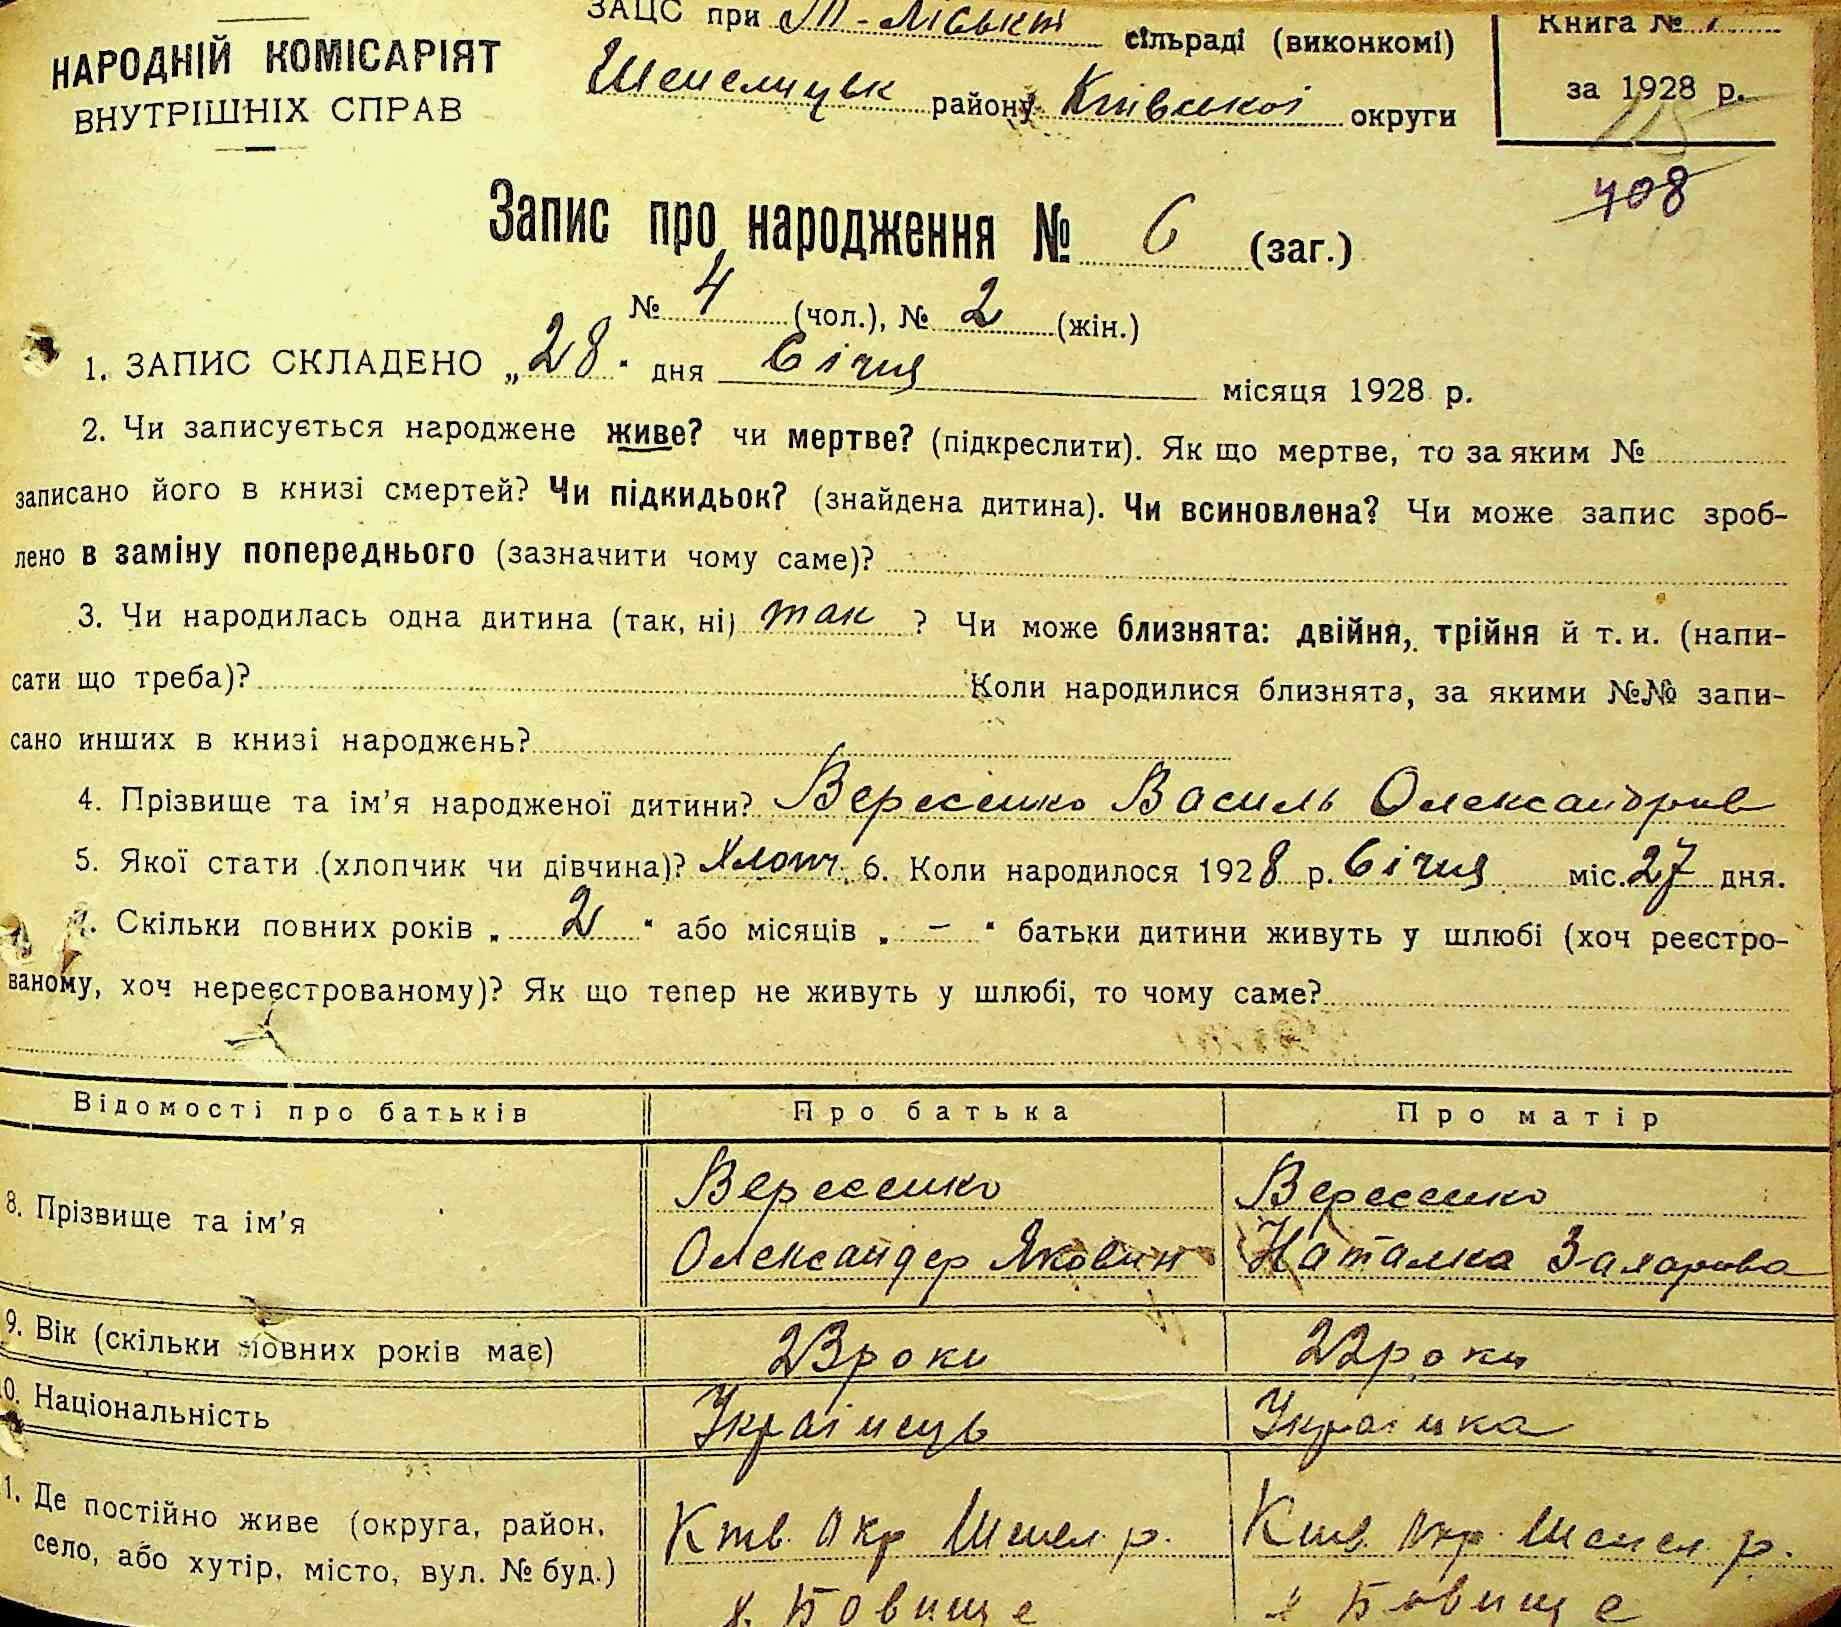 НАРОДНІЙ КОМІСАРІЯТ
ВНУТРІШНІХ СПРАВ
ЗАЦС при сільраді (виконкомі)
Шепелицьк району Київської округи
Книга №
за 1928 р.
115
408
Запис про народження № 6 (заг.)
№ 4 (чол.), № 2 (жін.)
1. ЗАПИС СКЛАДЕНО „28“ дня Січня місяця 1928 р.
2. Чи записується народжене живе? чи мертве? (підкреслити). Як що мертве, то за яким №
записано його в книзі смертей? Чи підкидьок? (знайдена дитина). Чи всиновлена? Чи може запис зроб-
лено в заміну попереднього (зазначити чому саме)?
3. Чи народилась одна дитина (так, ні) так ? Чи може близнята: двійня, трійня й т. и. (напи-
сати що треба)? Коли народилися близнята, за якими №№ запи-
сано инших в книзі народжень?
4. Прізвище та ім'я народженої дитини? Вересенко Василь Олександрів
5. Якої стати (хлопчик чи дівчина)? Хлопч. 6. Коли народилося 1928 р. Січня міс. 27 дня.
7. Скільки повних років „ 2 “ або місяців „ – “ батьки дитини живуть у шлюбі (хоч реєстро-
ваному, хоч нереєстрованому)? Як що тепер не живуть у шлюбі, то чому саме?
Відомості про батьків Про батька Про матір
8. Прізвище та ім'я
Вересенко
Олександер Яковин
Вересенко
Наталка Захарова
9. Вік (скільки повних років має) 23 роки 22 роки
10. Національність Українець Українка
11. Де постійно живе (округа, район,
село, або хутір, місто, вул. № буд.)
Київ. Окр Шепел. р.
х. Бовище
Київ. Окр. Шепел. р.
х Бовище